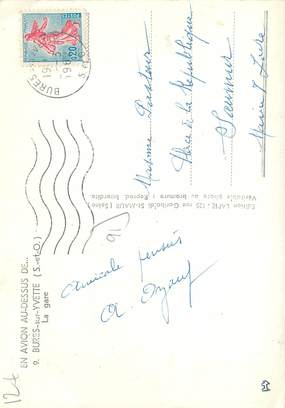 EN AVION AU-DESSUS DE...
9. BURES-sur-YVETTE (S.-et-O.)
La gare
Amicale pensée
91
Edition LAPIE : 125 rue Garibaldi St-MAUR (Seine)
Véritable photo au bromure : Reprod. Interdite
Madame
Place de la République
Saumur
Maine & Loire
0,20
BURES-S
124